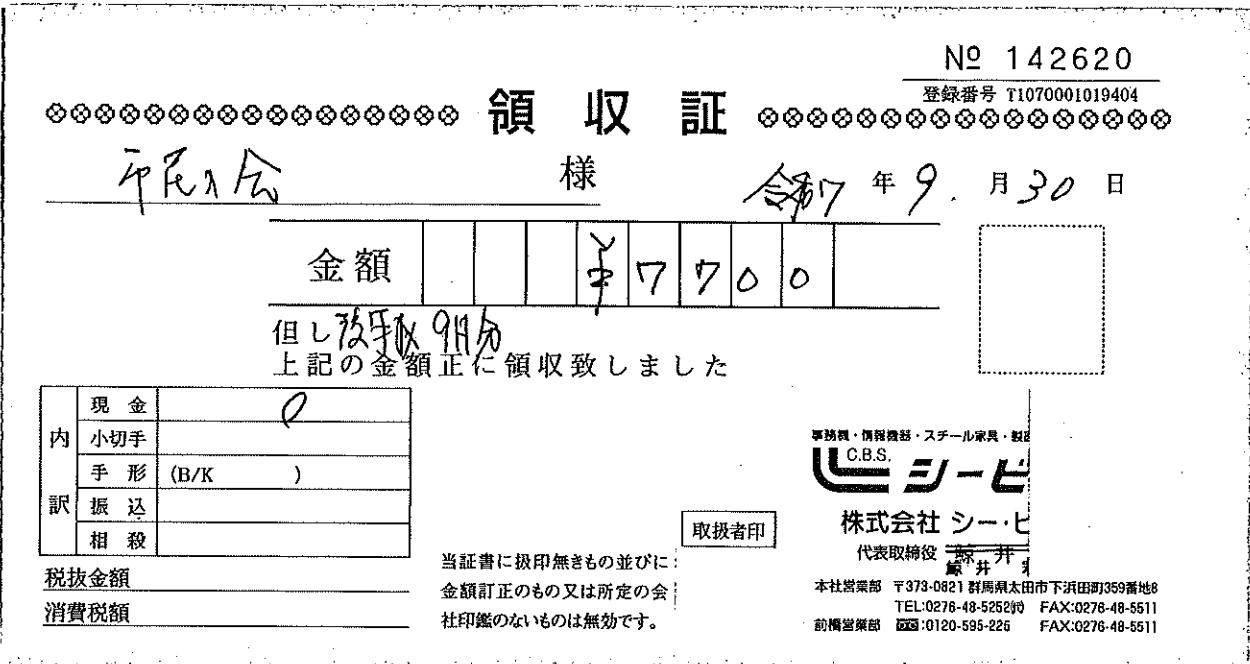 № 142620
登録番号 T1070001019404
領収証
市民の会 様
令和7年9.月30日
金額 ¥7700
但し 9月分
上記の金額正に領収致しました
内訳
現金
小切手
手形 (B/K )
振込
相殺
税抜金額
消費税額
取扱者印
当証書に扱印無きもの並びに
金額訂正のもの又は所定の会
社印鑑のないものは無効です。
事務機・情報機器・スチール家具・製図
C.B.S. シービ
株式会社 シー・ビ
代表取締役 鯨井
鯨井
本社営業部 〒373-0821 群馬県太田市下浜田町359番地8
TEL:0276-48-5252㈹ FAX:0276-48-5511
前橋営業部 :0120-595-226 FAX:0276-48-5511